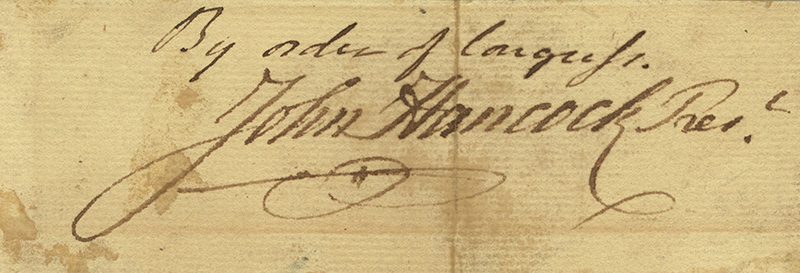 By order of Congreſs.
John Hancock Presᵗ.